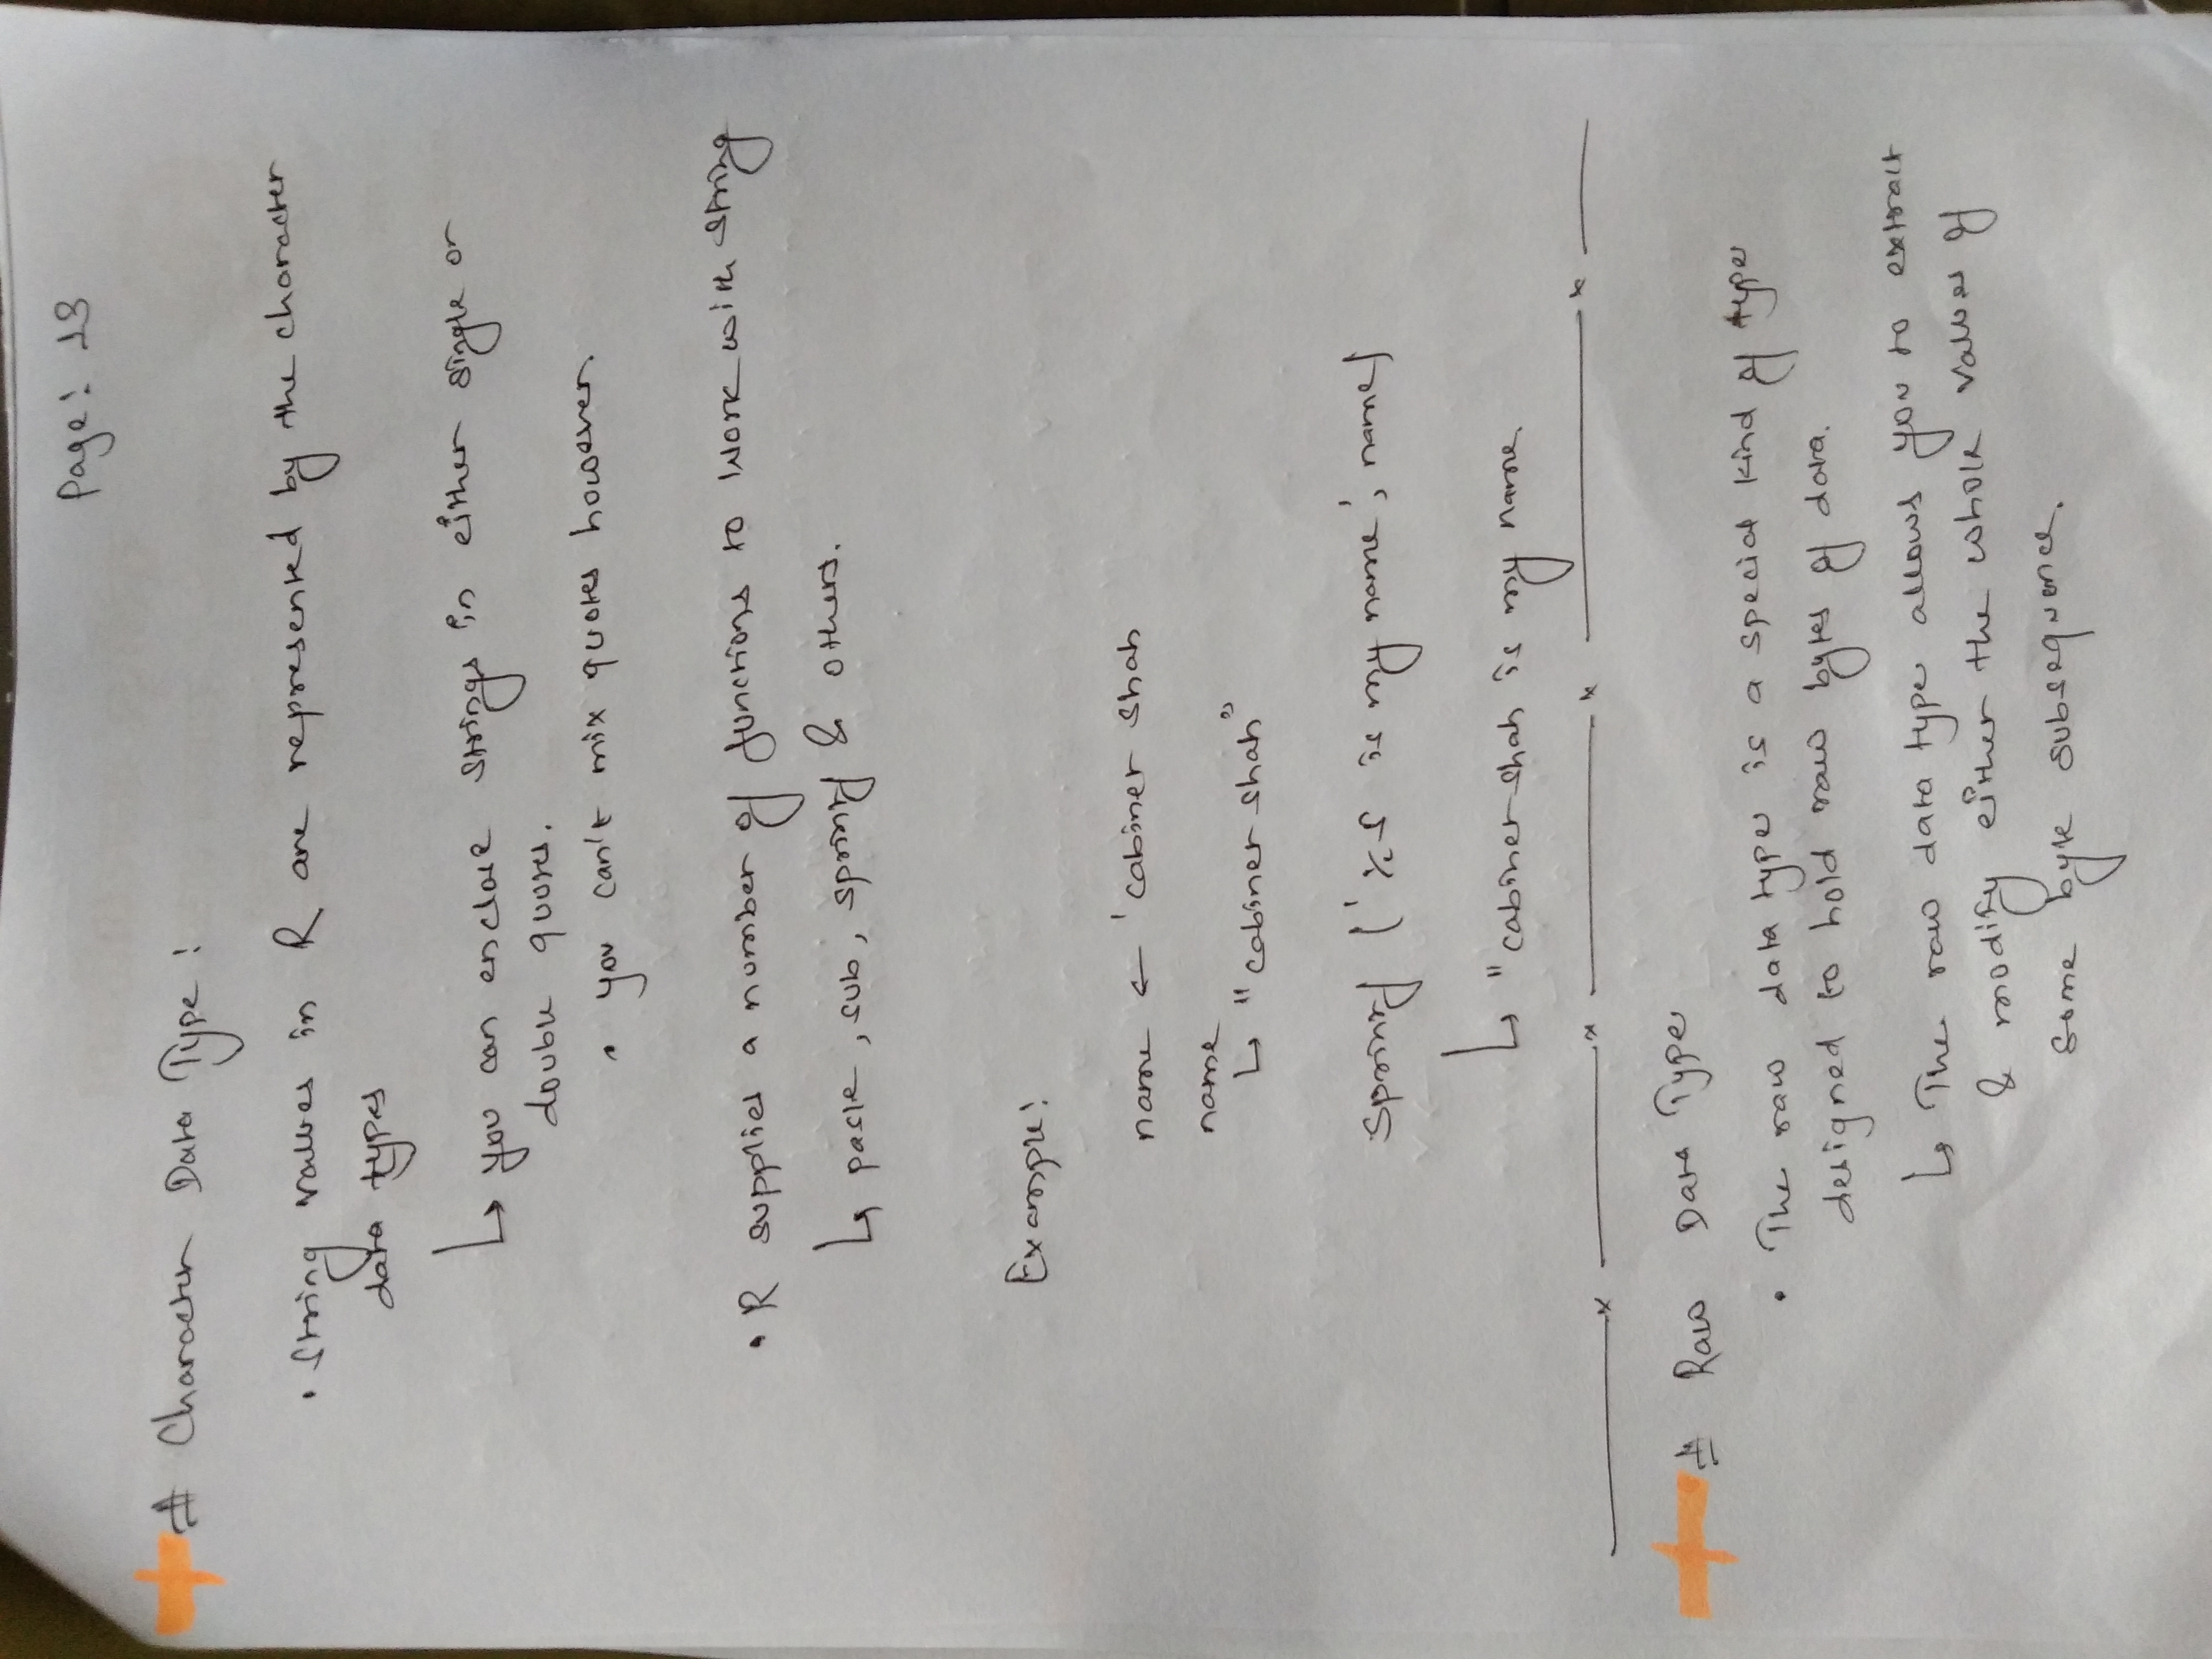 Page: 13
# Character Data Type:
• String values in R are represented by the character
data types
↳ you can enclose strings in either single or
double quotes.
• you can't mix quotes however.
• R supplies a number of functions to work with string
↳ paste, sub, sprintf & others.
Example:
name ← 'cabiner shah
name
↳ "cabiner shah"
Sprintf ('%s is my name', name)
↳ "cabiner shah is my name.
# Raw Data Type
• The raw data type is a special kind of type
designed to hold raw bytes of data.
↳ The raw data type allows you to extract
& modify either the whole values of
some byte subsequence.